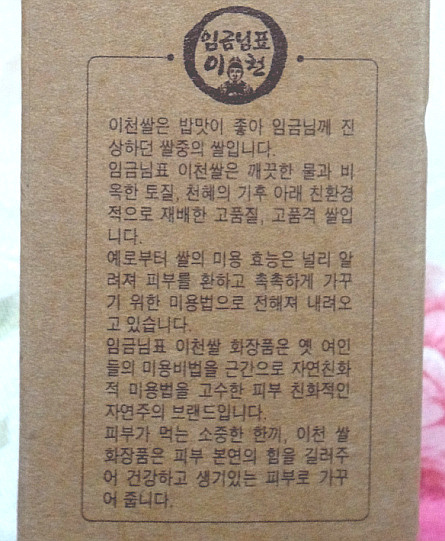 임금님표
이천
이천쌀은 밥맛이 좋아 임금님께 진
상하던 쌀중의 쌀입니다.
임금님표 이천쌀은 깨끗한 물과 비
옥한 토질, 천혜의 기후 아래 친환경
적으로 재배한 고품질, 고품격 쌀입
니다.
예로부터 쌀의 미용 효능은 널리 알
려져 피부를 환하고 촉촉하게 가꾸
기 위한 미용법으로 전해져 내려오
고 있습니다.
임금님표 이천쌀 화장품은 옛 여인
들의 미용비법을 근간으로 자연친화
적 미용법을 고수한 피부 친화적인
자연주의 브랜드입니다.
피부가 먹는 소중한 한끼, 이천 쌀
화장품은 피부 본연의 힘을 길러주
어 건강하고 생기있는 피부로 가꾸
어 줍니다.